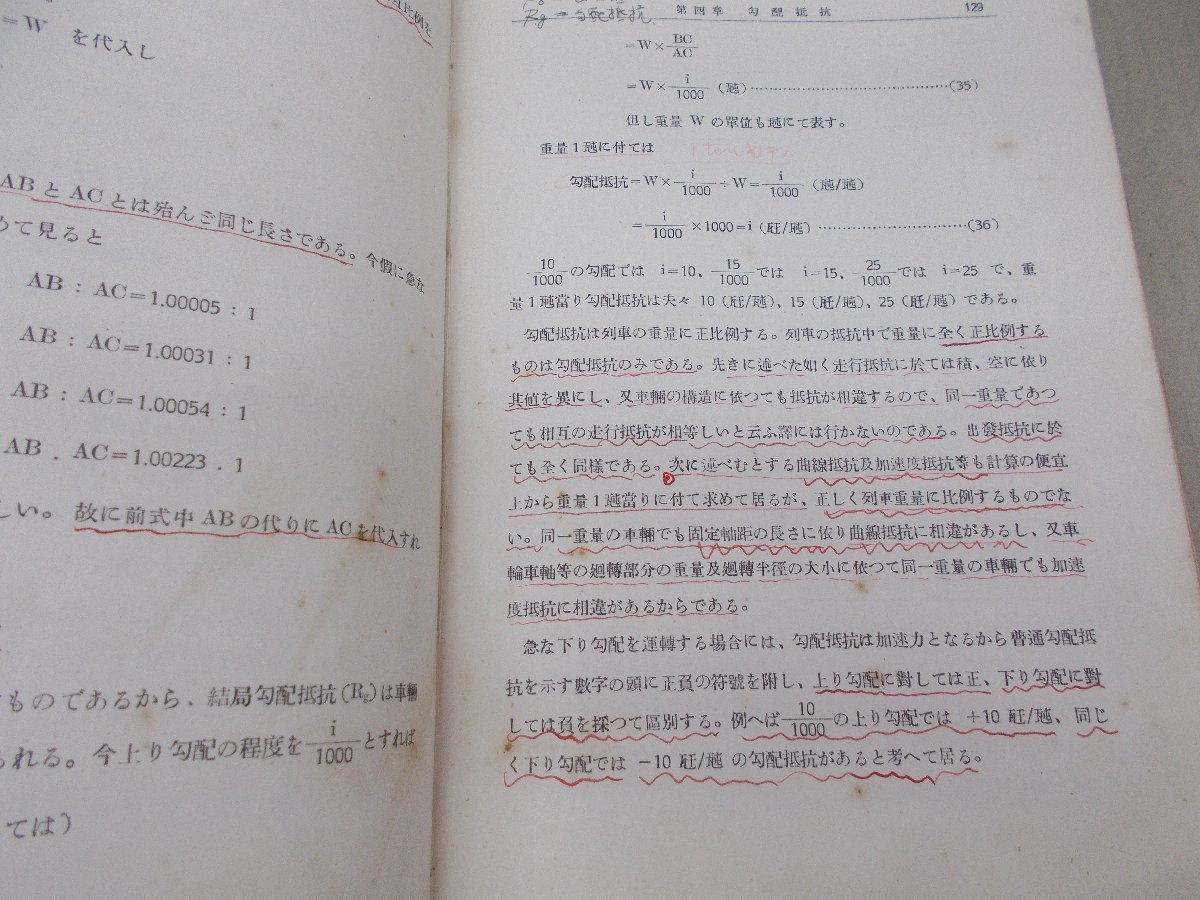 =W を代入し
ABとACとは殆んど同じ長さである。今假に急な
めて見ると
AB : AC=1.00005 : 1
AB : AC=1.00031 : 1
AB : AC=1.00054 : 1
AB . AC=1.00223 . 1
しい。故に前式中ABの代りにACを代入すれ
ものであるから、結局勾配抵抗(Rg)は車輛
られる。今上り勾配の程度を i/1000 とすれば
ては)
Rg = 勾配抵抗
第四章 勾配抵抗 129
=W× BC/AC
=W× i/1000 (瓲)……………………………………(35)
但し重量 W の單位も瓲にて表す。
重量1瓲に付ては
勾配抵抗=W× i/1000 ÷W= i/1000 (瓲/瓲)
= i/1000 ×1000=i (瓩/瓲)…………………………(36)
10/1000 の勾配では i=10、 15/1000 では i=15、 25/1000 では i=25 で、重
量1瓲當り勾配抵抗は夫々 10 (瓩/瓲)、15 (瓩/瓲)、25 (瓩/瓲) である。
勾配抵抗は列車の重量に正比例する。列車の抵抗中で重量に全く正比例する
ものは勾配抵抗のみである。先きに述べた如く走行抵抗に於ては積、空に依り
其値を異にし、又車輛の構造に依つても抵抗が相違するので、同一重量であつ
ても相互の走行抵抗が相等しいと云ふ譯には行かないのである。出發抵抗に於
ても全く同樣である。次に述べむとする曲線抵抗及加速度抵抗等も計算の便宜
上から重量1瓲當りに付て求めて居るが、正しく列車重量に比例するものでな
い。同一重量の車輛でも固定軸距の長さに依り曲線抵抗に相違があるし、又車
輪車軸等の廻轉部分の重量及廻轉半徑の大小に依つて同一重量の車輛でも加速
度抵抗に相違があるからである。
急な下り勾配を運轉する場合には、勾配抵抗は加速力となるから普通勾配抵
抗を示す數字の頭に正負の符號を附し、上り勾配に對しては正、下り勾配に對
しては負を採つて區別する。例へば 10/1000 の上り勾配では +10 瓩/瓲、同じ
く下り勾配では -10 瓩/瓲 の勾配抵抗があると考へて居る。